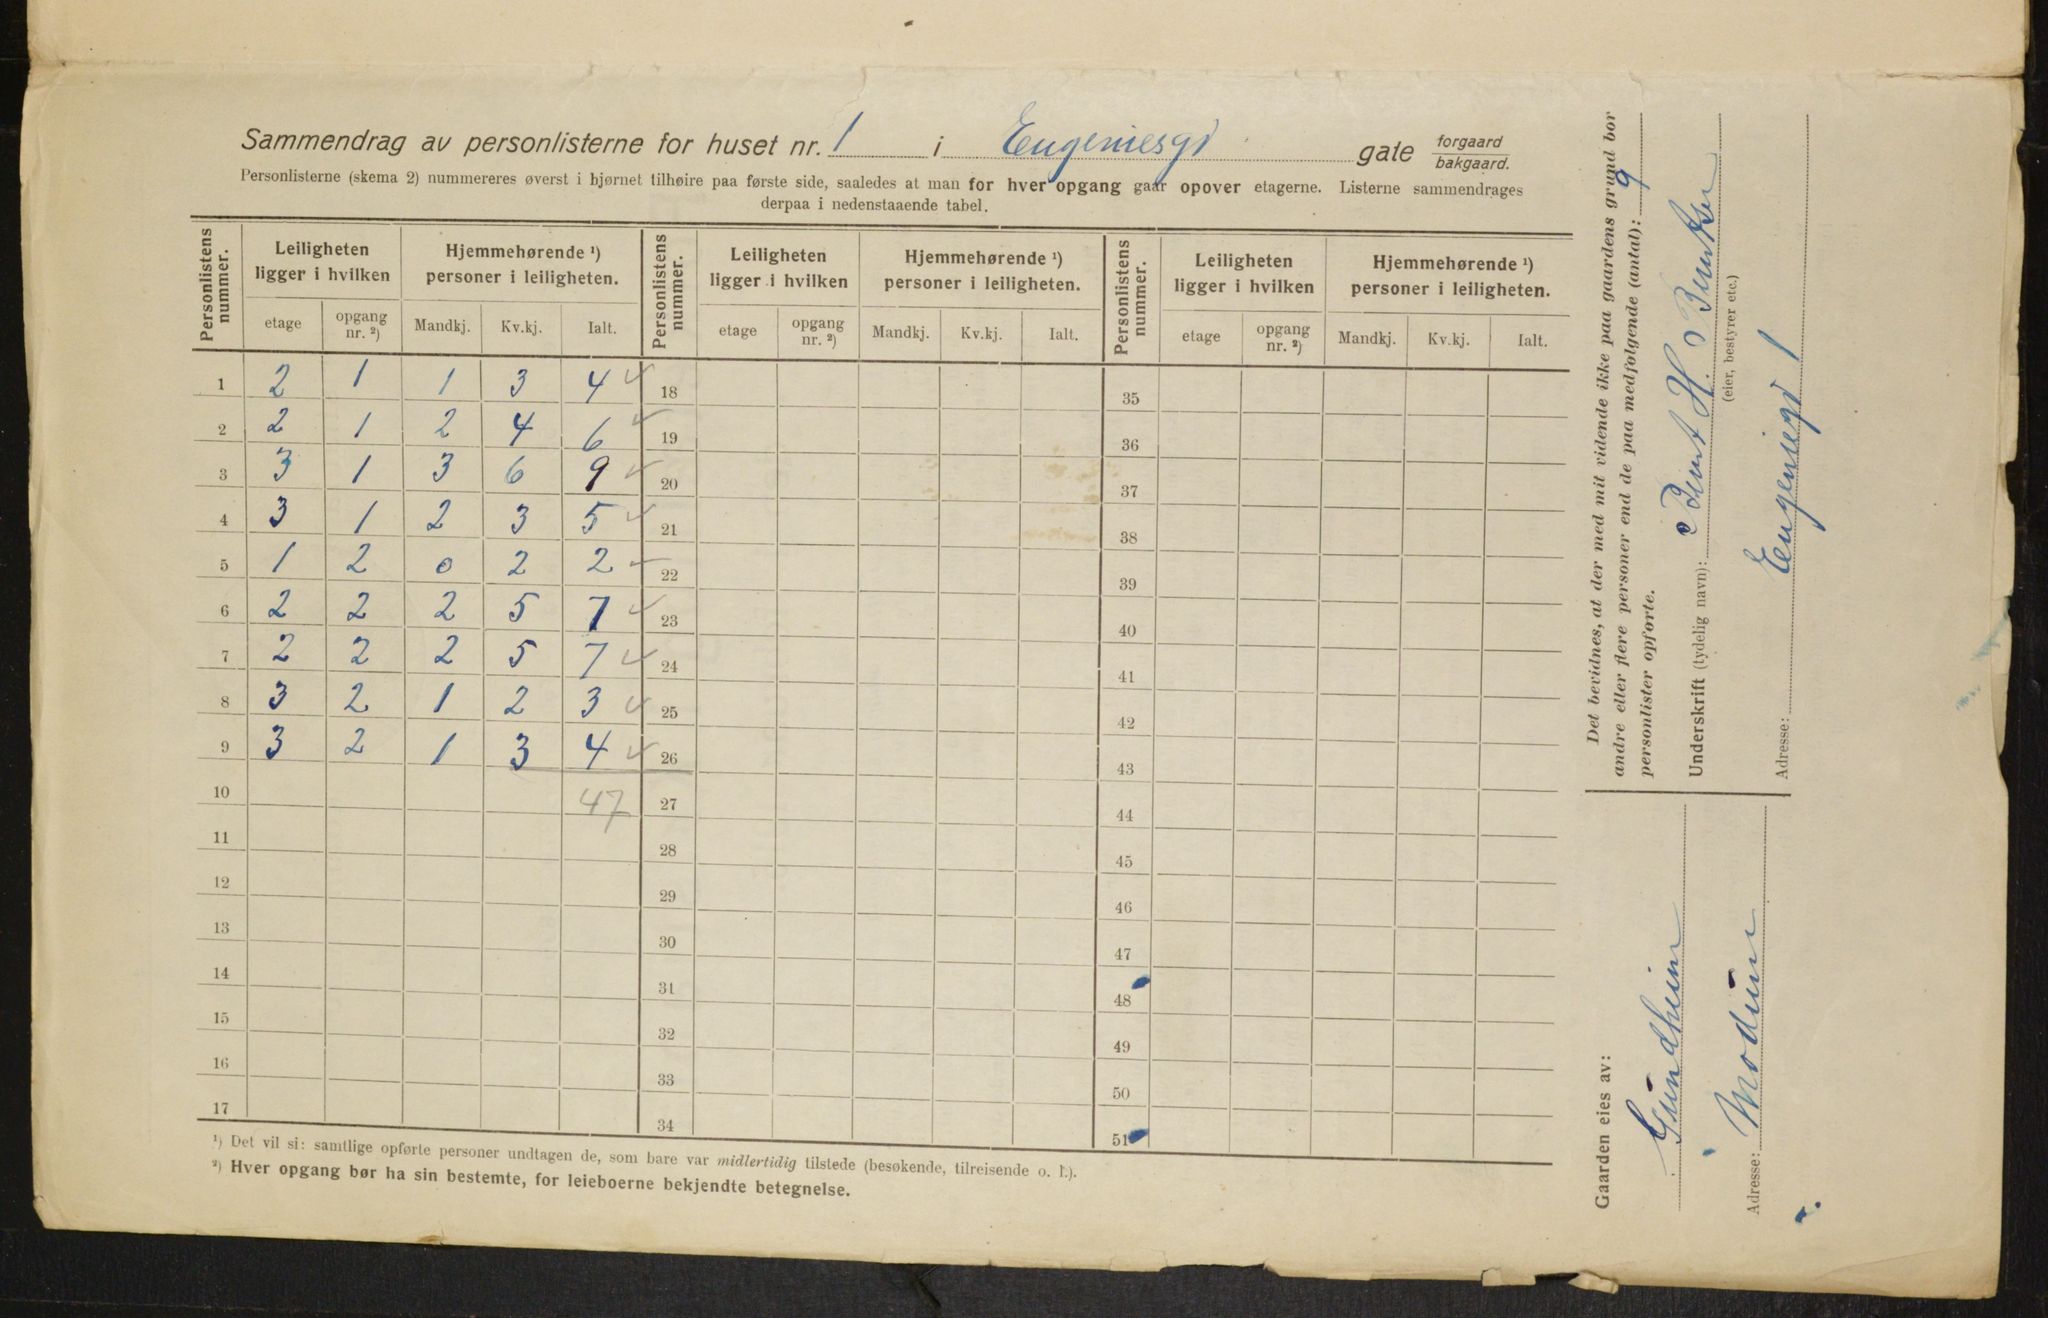 Sammendrag av personlisterne for huset nr. 1 i Eugeniesgt gate forgaard/bakgaard.
Personlisterne (skema 2) nummereres øverst i hjørnet tilhøire paa første side, saaledes at man for hver opgang gaar opover etagerne. Listerne sammendrages
derpaa i nedenstaaende tabel.
Personlistens nummer. | Leiligheten ligger i hvilken | Hjemmehørende ¹) personer i leiligheten. | Personlistens nummer. | Leiligheten ligger i hvilken | Hjemmehørende ¹) personer i leiligheten. | Personlistens nummer. | Leiligheten ligger i hvilken | Hjemmehørende ¹) personer i leiligheten.
etage | opgang nr. ²) | Mandkj. | Kv.kj. | Ialt. | etage | opgang nr. ²) | Mandkj. | Kv.kj. | Ialt. | etage | opgang nr. ²) | Mandkj. | Kv.kj. | Ialt.
1 2 1 1 3 4 ✓ 18 35
2 2 1 2 4 6 ✓ 19 36
3 3 1 3 6 9 ✓ 20 37
4 3 1 2 3 5 ✓ 21 38
5 1 2 0 2 2 ✓ 22 39
6 2 2 2 5 7 ✓ 23 40
7 2 2 2 5 7 ✓ 24 41
8 3 2 1 2 3 ✓ 25 42
9 3 2 1 3 4 ✓ 26 43
10 47 27 44
11 28 45
12 29 46
13 30 47
14 31 48
15 32 49
16 33 50
17 34 51
¹) Det vil si: samtlige opførte personer undtagen de, som bare var midlertidig tilstede (besøkende, tilreisende o. l.).
²) Hver opgang bør ha sin bestemte, for leieboerne bekjendte betegnelse.
Det bevidnes, at der med mit vidende ikke paa gaardens grund bor
andre eller flere personer end de paa medfølgende (antal): 9
personlister opførte.
Underskrift (tydelig navn): Bernt H. Berntsen
(eier, bestyrer etc.)
Adresse: Eugeniegt 1
Gaarden eies av:
Gundheim
Adresse: Modum